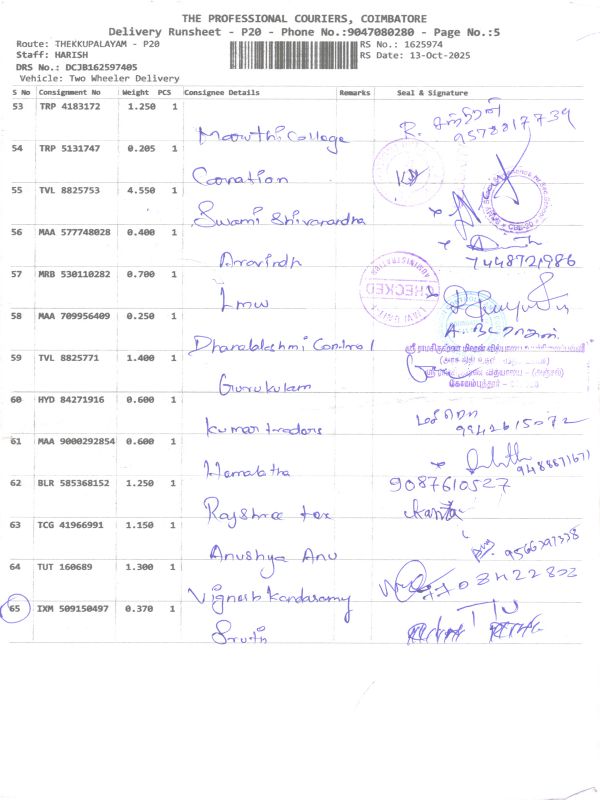 THE PROFESSIONAL COURIERS, COIMBATORE
Delivery Runsheet - P20 - Phone No.:9047080280 - Page No.:5
Route: THEKKUPALAYAM - P20 RS No.: 1625974
Staff: HARISH RS Date: 13-Oct-2025
DRS No.: DCJB162597405
Vehicle: Two Wheeler Delivery
S No Consignment No Weight PCS Consignee Details Remarks Seal & Signature
53 TRP 4183172 1.250 1
Maruthi College R. 9578817739
54 TRP 5131747 0.205 1
Coronation
55 TVL 8825753 4.550 1
Swami Shivanandha
56 MAA 577748028 0.400 1
Aravindh 7448721986
57 MRB 530110282 0.700 1
Lmw
CHECKED
58 MAA 709956409 0.250 1
Dhanalakshmi Control
59 TVL 8825771 1.400 1
Gurukulam
கோயம்புத்தூர்
60 HYD 84271916 0.600 1
Kumar traders 9942615072
61 MAA 9000292854 0.600 1
Hemalatha 9488671671
62 BLR 585368152 1.250 1 9087610527
Rajshree tex
63 TCG 41966991 1.150 1
Anushya Anu
64 TUT 160689 1.300 1
Vignesh Kandasamy
65 IXM 509150497 0.370 1
Sruth